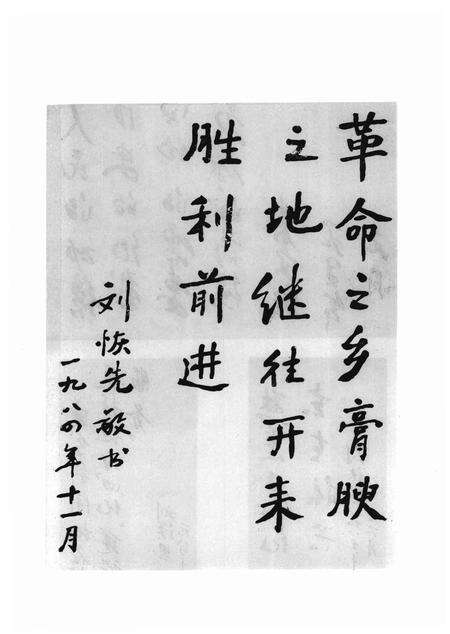 革命之乡膏腴
之地继往开来
胜利前进
刘恢先敬书
一九八四年十一月